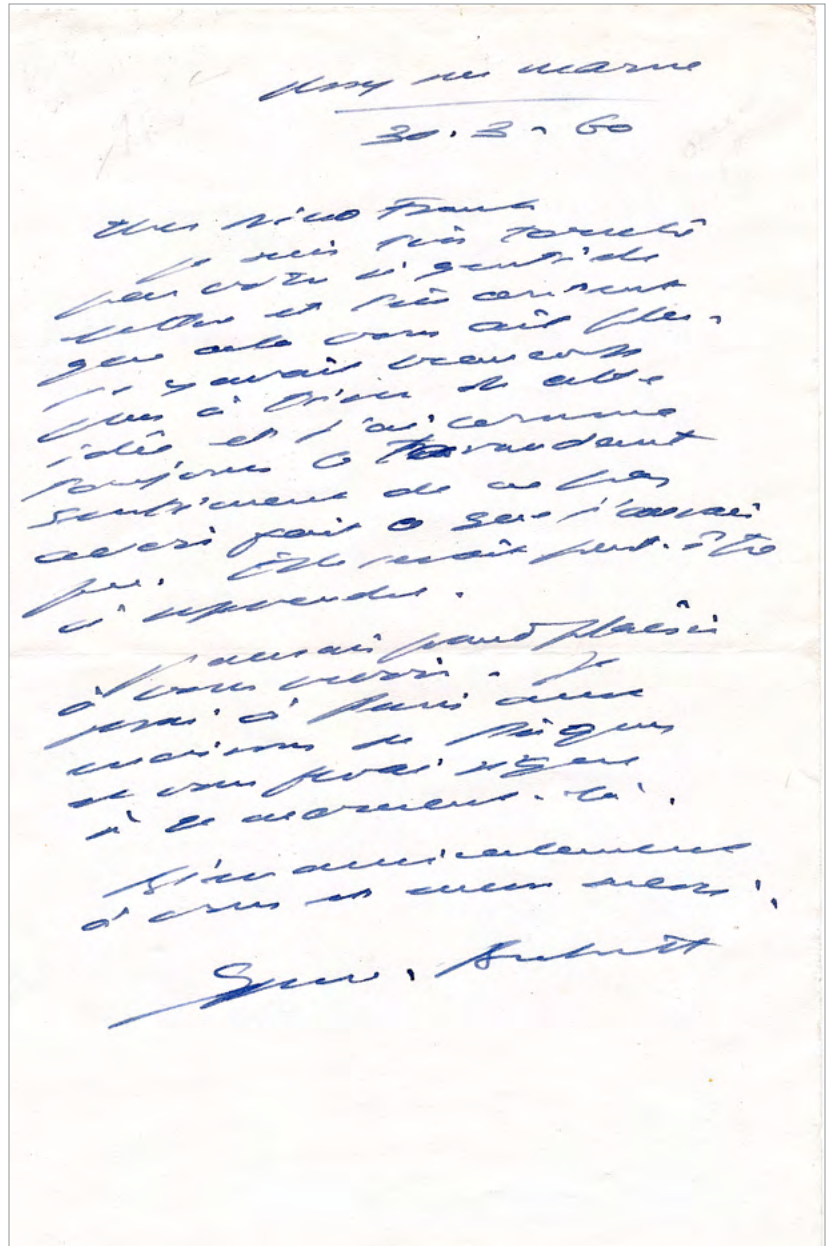 Ussy sur Marne
30.3.60
Cher Nino Frank
Je suis très touché
par votre si gentille
lettre et très content
que cela vous ait plu.
Il y avait beaucoup
plus à tirer de cette
idée et j'ai comme
toujours le taraudant
sentiment de ne pas
avoir fait ce que j'aurais
pu. Elle serait peut-être
à reprendre.
J'aurais grand plaisir
à vous revoir. Je
serai à Paris aux
environs de Pâques
et vous ferai signe
à ce moment-là.
Bien amicalement
à vous et merci.
Sam. Beckett